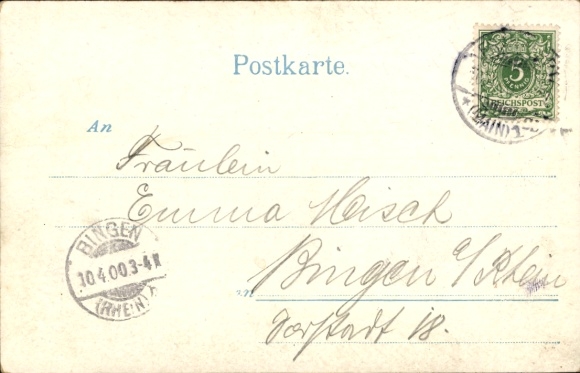 Postkarte.
5
REICHSPOST
(MAIN) 1
An
Fräulein
Emma Hisch
Bingen a/Rhein
in
Vorstadt 18.
BINGEN
10.4.00.3-4N
(RHEIN)